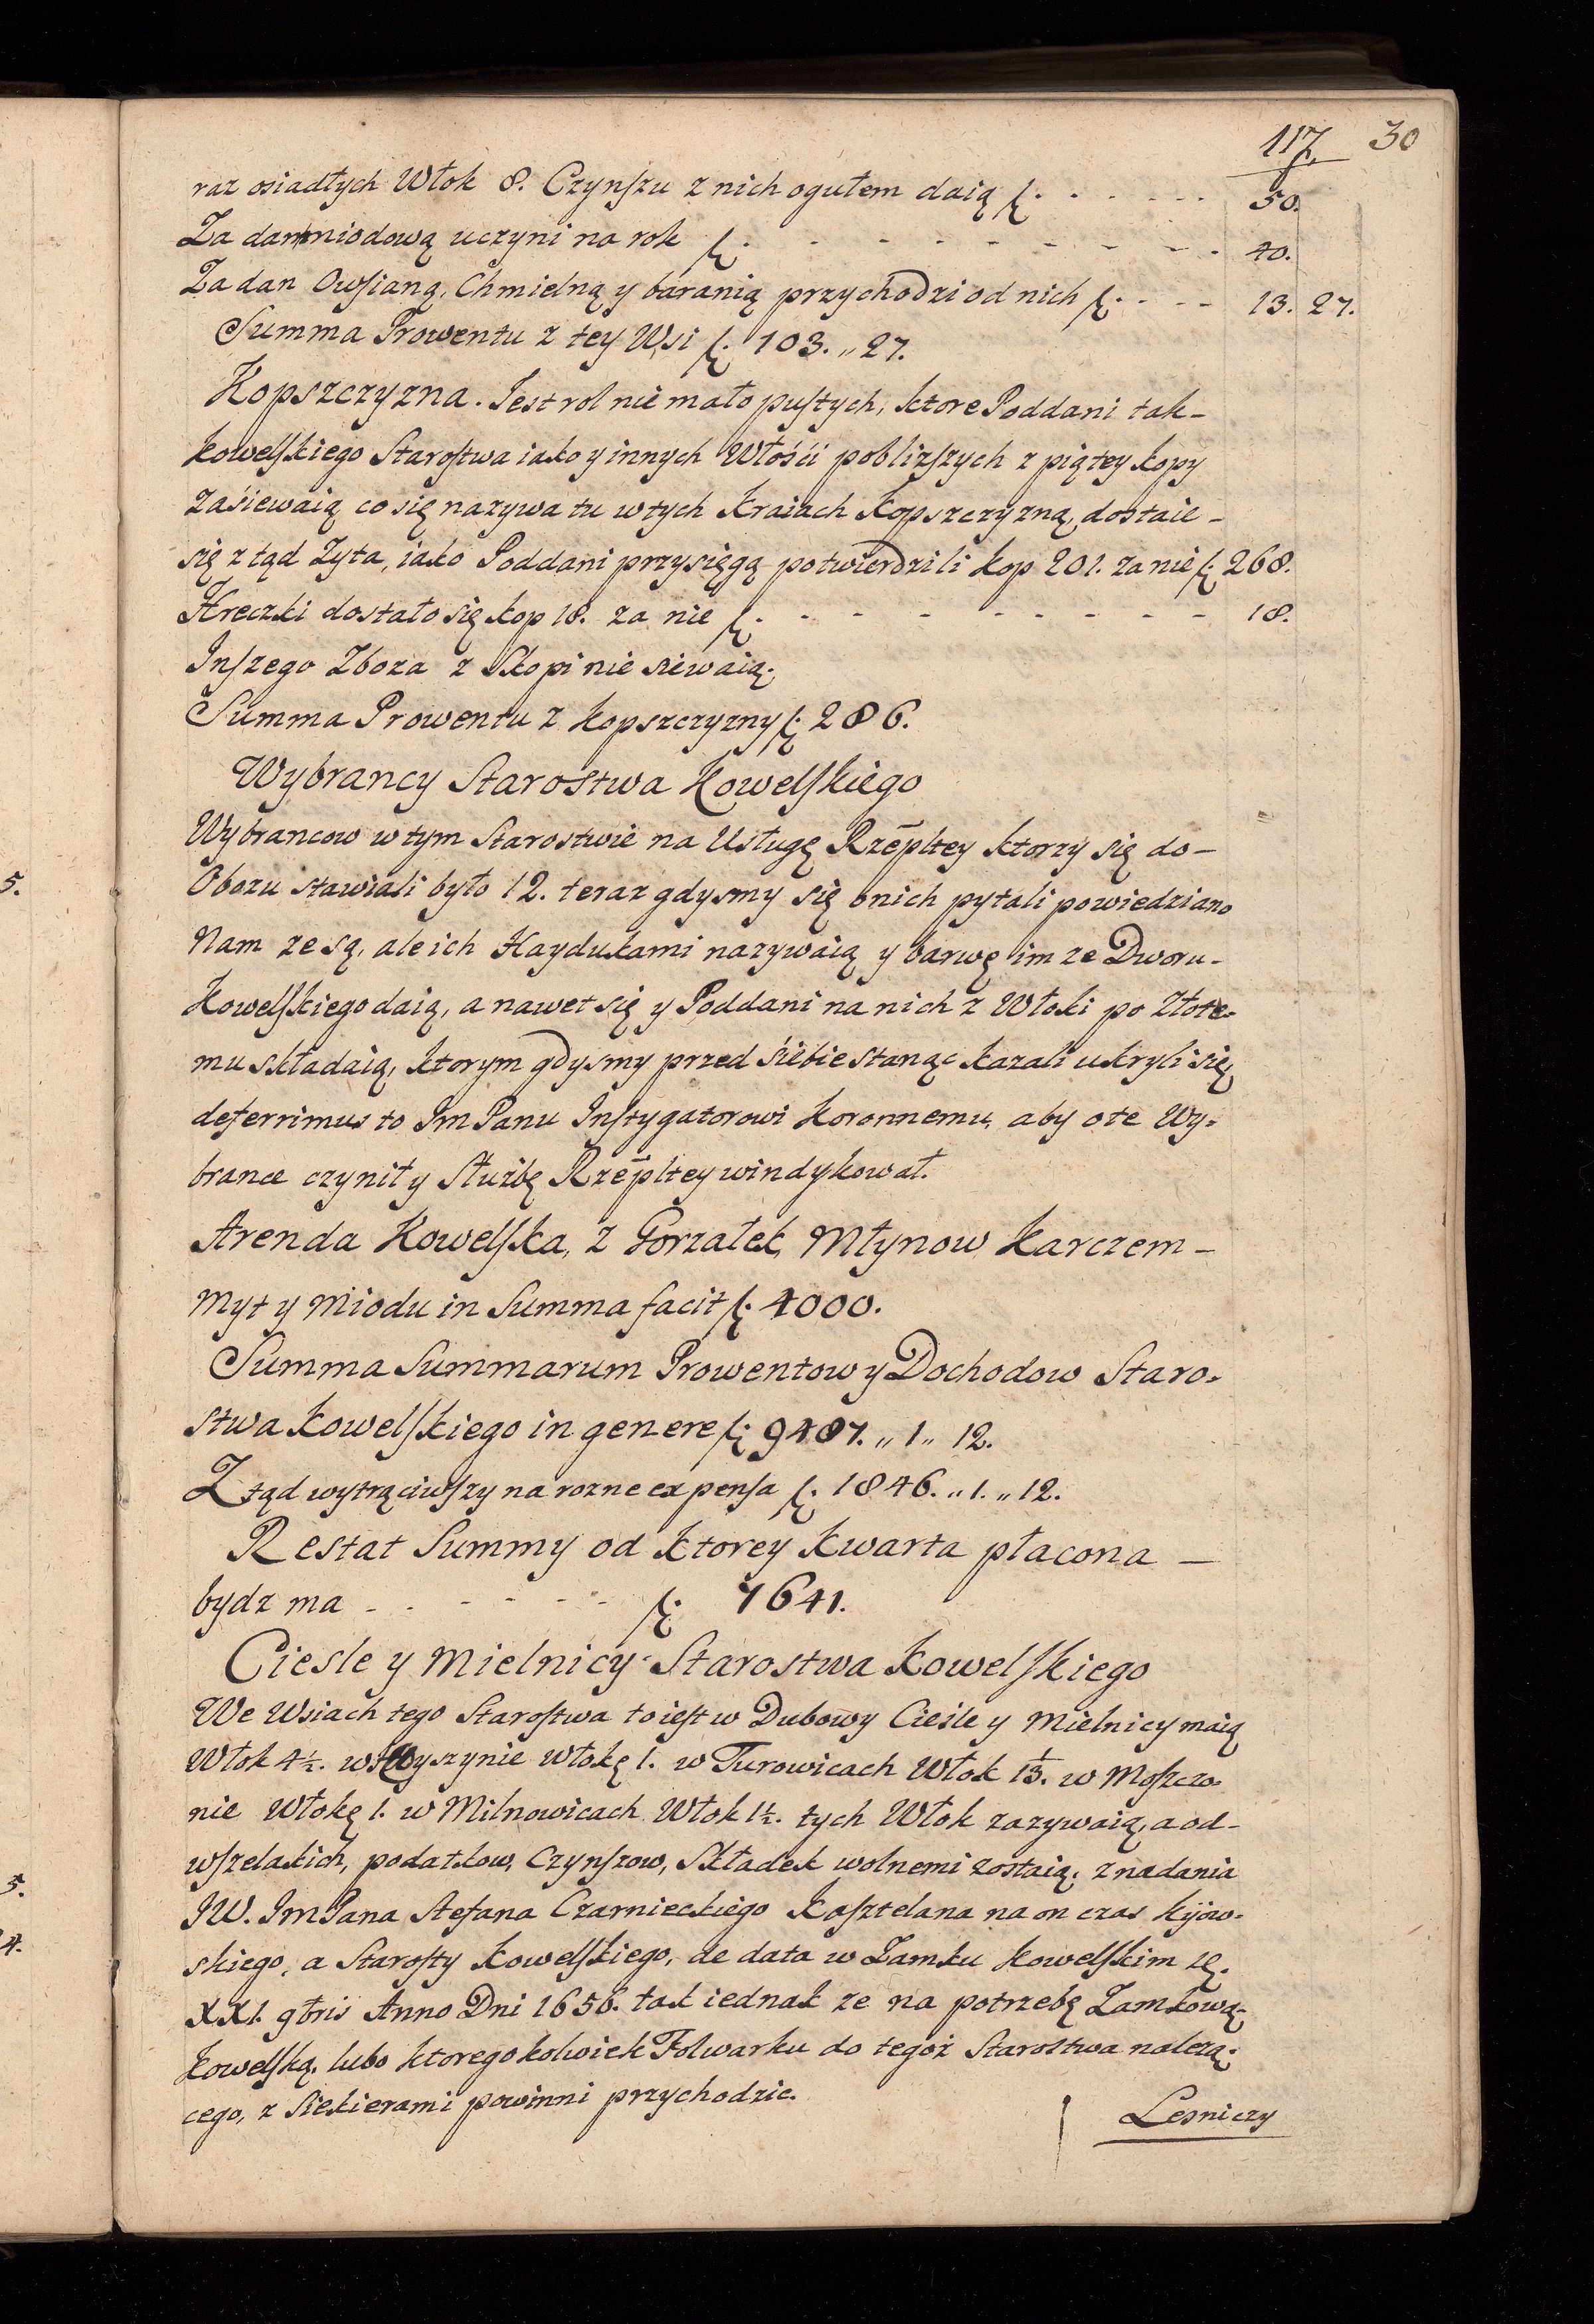 117. 30
raz osiadłych Włok 8. Czynſzu z nich ogułem daią f. - - - - - - 50.
Za dan miodową uczyni na rok f. - - - - - - - - - 40.
Za dan Owſianą, Chmielną y baranią przychodzi od nich f. - - - - 13. 27.
Summa Prowentu z tey Wsi f. 103. „ 27.
Kopszczyzna. Jest rol nie mało puſtych, ktore Poddani tak-
Kowelſkiego Staroſtwa iako y innych Włości pobliżſzych z piątey kopy
zasiewaią co się nazywa tu w tych Kraiach Kopszczyzną, dostaie-
się z tąd Zyta, iako Poddani przysięgą potwierdzili kop 201. za nie f. 268.
Hreczki dostało się kop 18. za nie f. - - - - - - - - - 18.
Inſzego Zboza z Skopi nie siewaią.
Summa Prowentu z Kopszczyzny f. 286.
Wybrancy Starostwa Kowelſkiego
Wybrancow w tym Starostwie na Usługę Rzēpltey ktorzy się do-
Obozu stawiali było 12. teraz gdysmy się o nich pytali powiedziano
Nam ze są, ale ich Haydukami nazywaią y barwę im ze Dworu-
Kowelſkiego daią, a nawet się y Poddani na nich z Włoki po Złote-
mu składaią, ktorym gdysmy przed siebie stanąc kazali ukryli się,
deferrimus to Jm Panu Inſtygatorowi Koronnemu, aby o te Wy-
brance czynił y Służbę Rzēpltey windykował.
Arenda Kowelſka, z Gorzałek, Młynow Karczem-
Myt y Miodu in Summa facit f. 4000.
Summa Summarum Prowentow y Dochodow Staro-
stwa Kowelſkiego in genere f. 9487. „ 1 „ 12.
Z tąd wytrąciwſzy na rozne expenſa f. 1846. „ 1. „ 12.
Restat Summy od ktorey Kwarta płacona -
bydz ma - - - - - - f. 7641.
Ciesle y Mielnicy Starostwa Kowelſkiego
We Wsiach tego Staroſtwa to ieſt w Dubowy Cieśle y Mielnicy maią
Włok 4½. w Wyszynie włokę 1. w Turowicach Włok 1⅓. w Moſzczo-
nie Włokę 1. w Milnowicach Włok 1½. tych Włok zazywaią, a od-
wſzelakich, podatkow, Czynſzow, Składek wolnemi zostaią. z nadania
JW. Jm Pana Stefana Czarnieckiego Kaſztelana na on czas Kijow-
skiego, a Staroſty Kowelſkiego, de data w Zamku Kowelſkim
XXI. 9bris Anno Dni 1656. tak iednak ze na potrzebę Zamkową-
Kowelſką. lubo ktoregokolwiek Folwarku do tegoż Starostwa nalezą-
cego, z Siekierami powinni przychodzic.
Lesniczy
5.
5.
4.